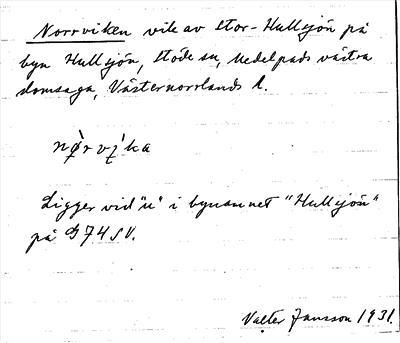 Norrviken vik av Stor-Hullsjön på
byn Hullsjön, Stöde sn, Medelpads västra
domsaga, Västernorrlands l.
nø̀rvi̯ka
Ligger vid "u" i bynamnet "Hullsjön"
på G 74 SV.
Valter Jansson 1931